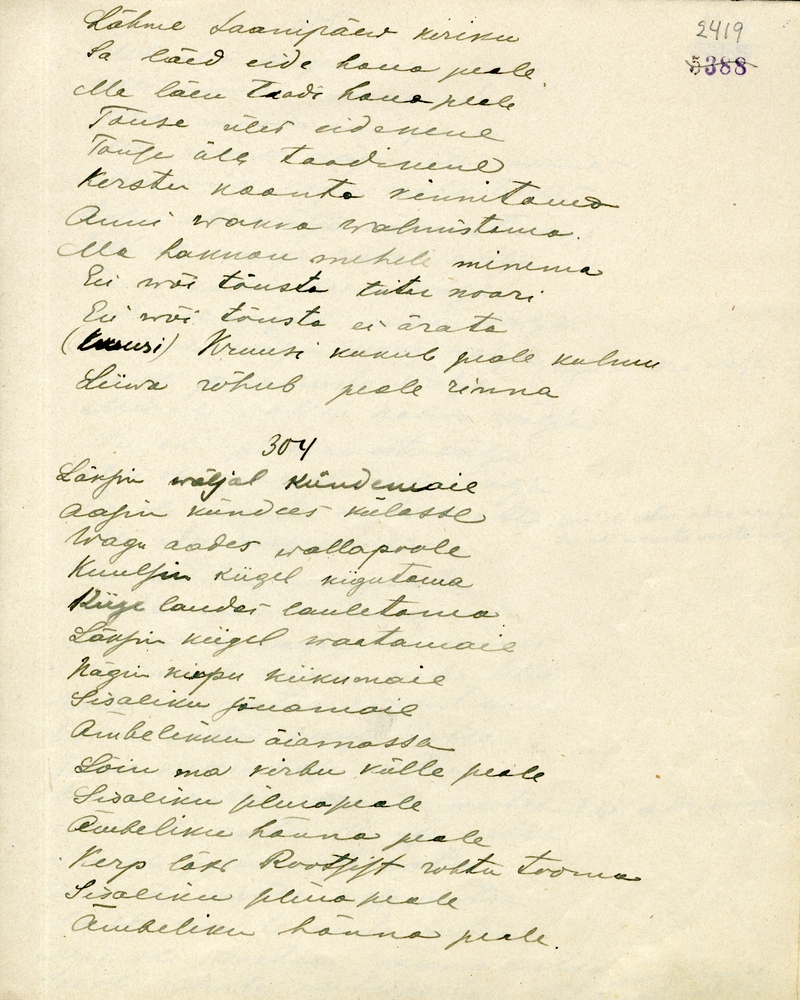 2419
5388
Lähme Jaanipäew kiriku
Sa läed eide haua peale
Ma läen taadi haua peale
Tõuse üles eidekene
Tõuse üle taadikene
Kerstu kaanta kinnitama
Anni wakka walmistama.
Ma hakkan mehele minema
Ei wõi tõusta tütu noori
Ei wõi tõusta ei ärata
Kruusi kukub peale kulmu
Liiwa rõhub peale rinna
304
Läksin wäljal kündemaie
aasin kündes külasse
Wagu aades wallapoole
Kuulsin kiigel kiigutama
Kiige laudas lauletama
Läksin kiigel waatamaie
Nägin kirpu kiikumaie
Sisaliku jõuamaie
Ämbelikku äiamassa
Lõin ma kirbu külle peale
Sisaliku silma peale
Ämbeliku hänna peale
Kerp läks Rootsist rohtu tooma
Sisaliku silma peale
Ämbeliku hänna peale.